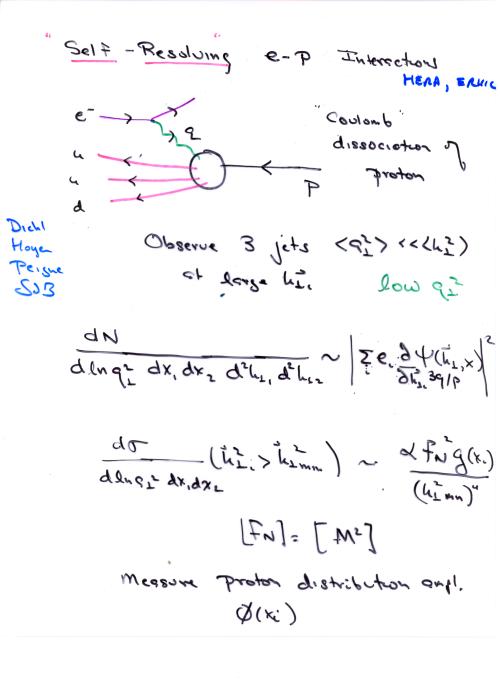 "Self-Resolving" e-p Interactions
HERA, ERHIC
e⁻
q
"Coulomb"
dissociation of
proton
u
u
d
p
Diehl
Hoyer
Peigne
SJB
Observe 3 jets <q⊥²> << <k⊥²>
at large k⃗⊥ᵢ
low q⊥²
dN / (d ln q⊥² dx₁ dx₂ d²k⊥₁ d²k⊥₂) ~ |Σᵢ eᵢ ∂/∂k⃗⊥ᵢ ψ(k⃗⊥ᵢ, x)₃q/p|²
dσ / (d ln q⊥² dx₁ dx₂) (k⃗⊥ᵢ² > k⃗⊥²min) ~ α f_N² g(xᵢ) / (k⊥²min)⁴
[f_N] = [M²]
Measure proton distribution ampl.
Ø(xᵢ)